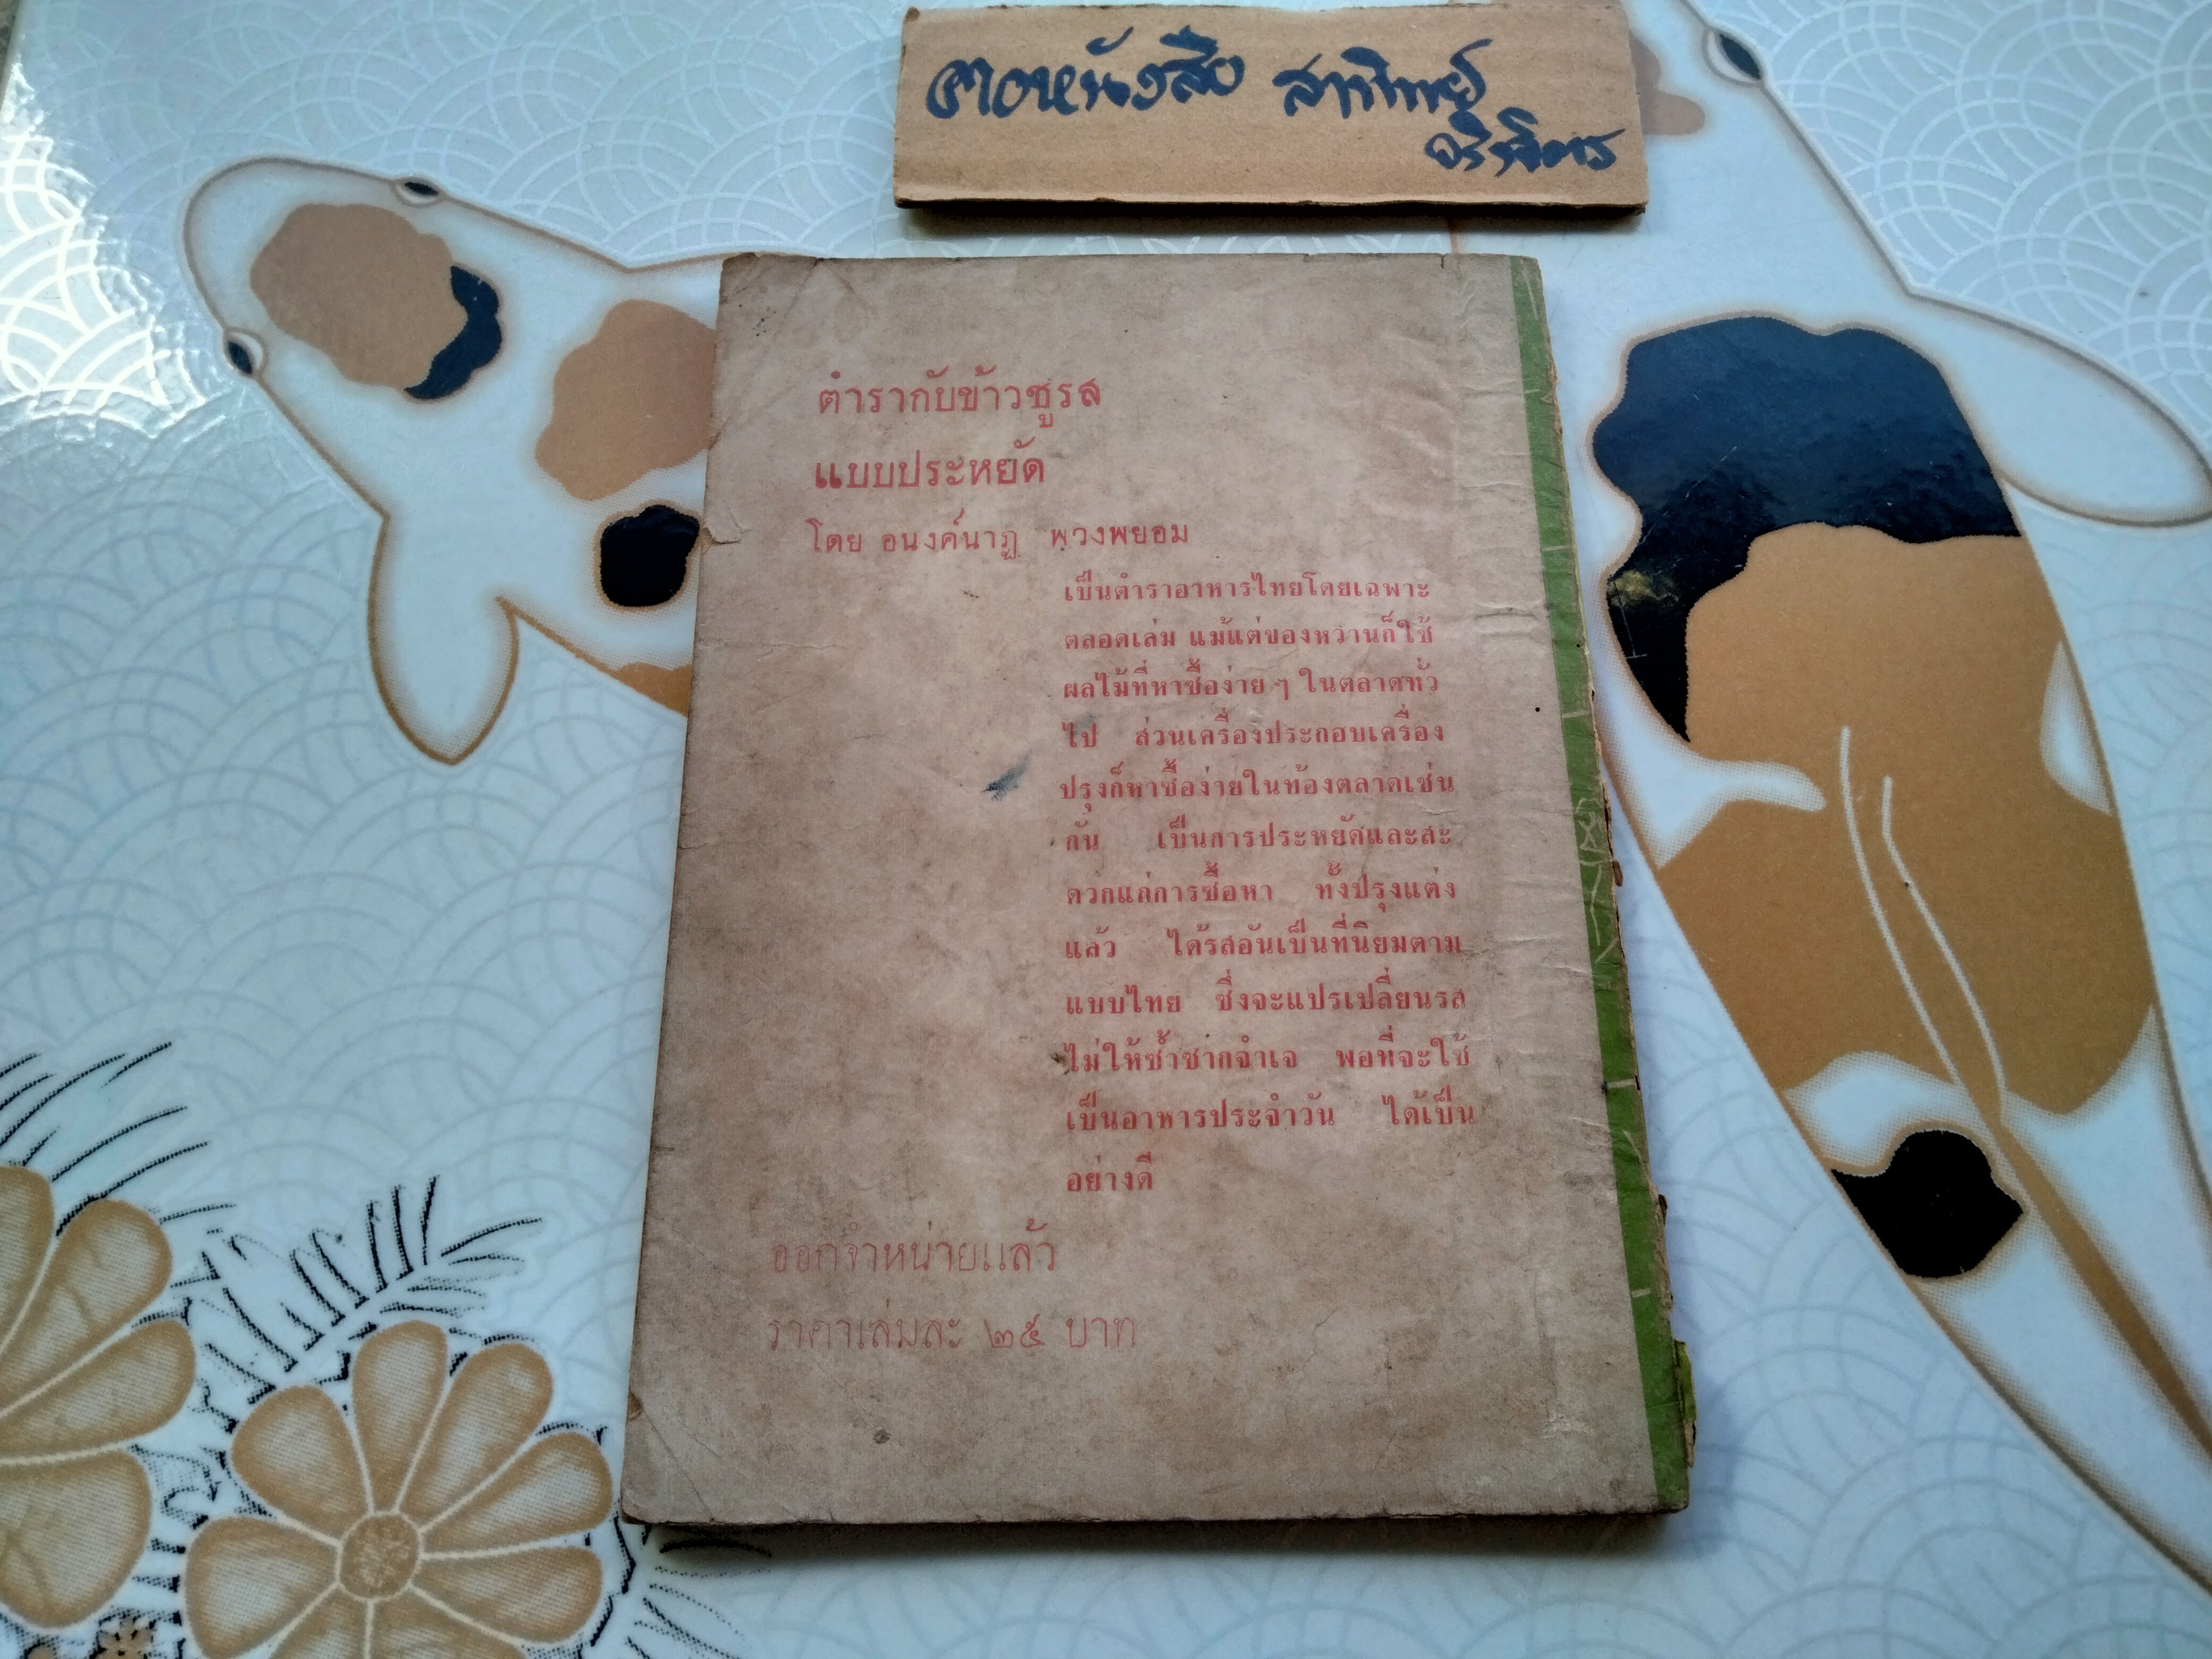 ตำรากับข้าวชูรส
แบบประหยัด
โดย อนงค์นาฏ พวงพยอม
เป็นตำราอาหารไทยโดยเฉพาะ
ตลอดเล่ม แม้แต่ของหวานก็ใช้
ผลไม้ที่หาซื้อง่าย ๆ ในตลาดทั่ว
ไป ส่วนเครื่องประกอบเครื่อง
ปรุงก็หาซื้อง่ายในท้องตลาดเช่น
กัน เป็นการประหยัดและสะ
ดวกแก่การซื้อหา ทั้งปรุงแต่ง
แล้ว ได้รสอันเป็นที่นิยมตาม
แบบไทย ซึ่งจะแปรเปลี่ยนรส
ไม่ให้ซ้ำซากจำเจ พอที่จะใช้
เป็นอาหารประจำวัน ได้เป็น
อย่างดี
ออกจำหน่ายแล้ว
ราคาเล่มละ ๒๕ บาท